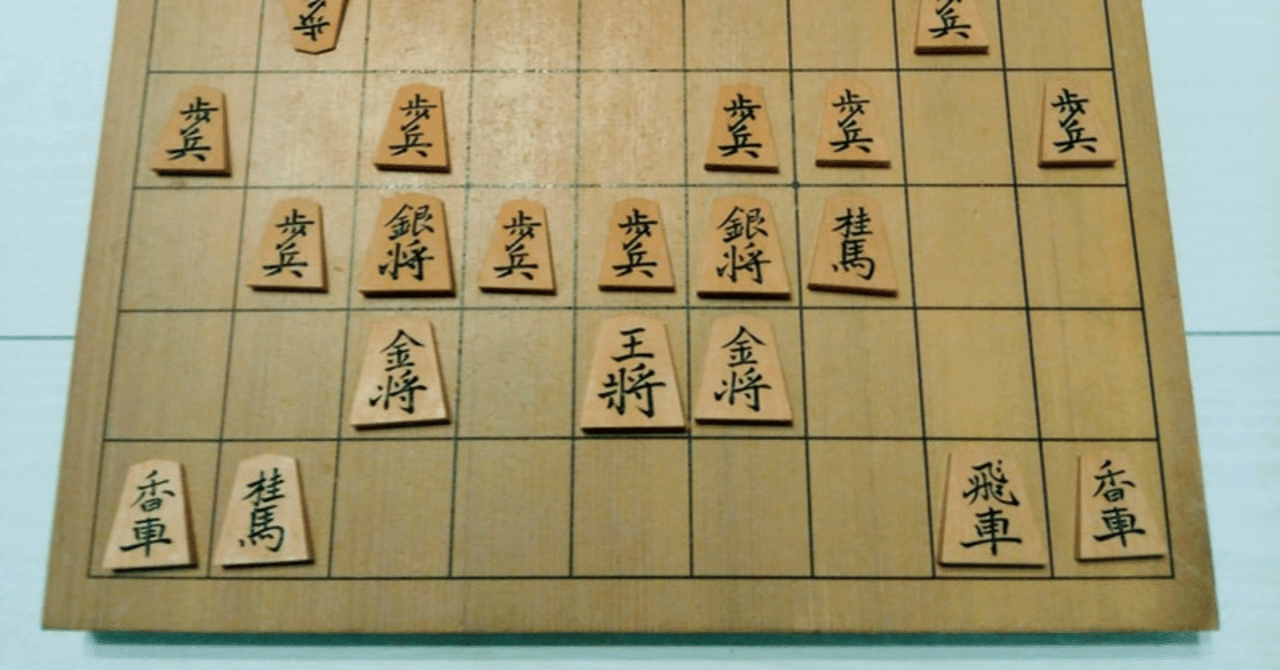 歩
歩兵
歩兵 歩兵 歩兵 歩兵 歩兵
歩兵 銀将 歩兵 歩兵 銀将 桂馬
金将 王将 金将
香車 桂馬 飛車 香車